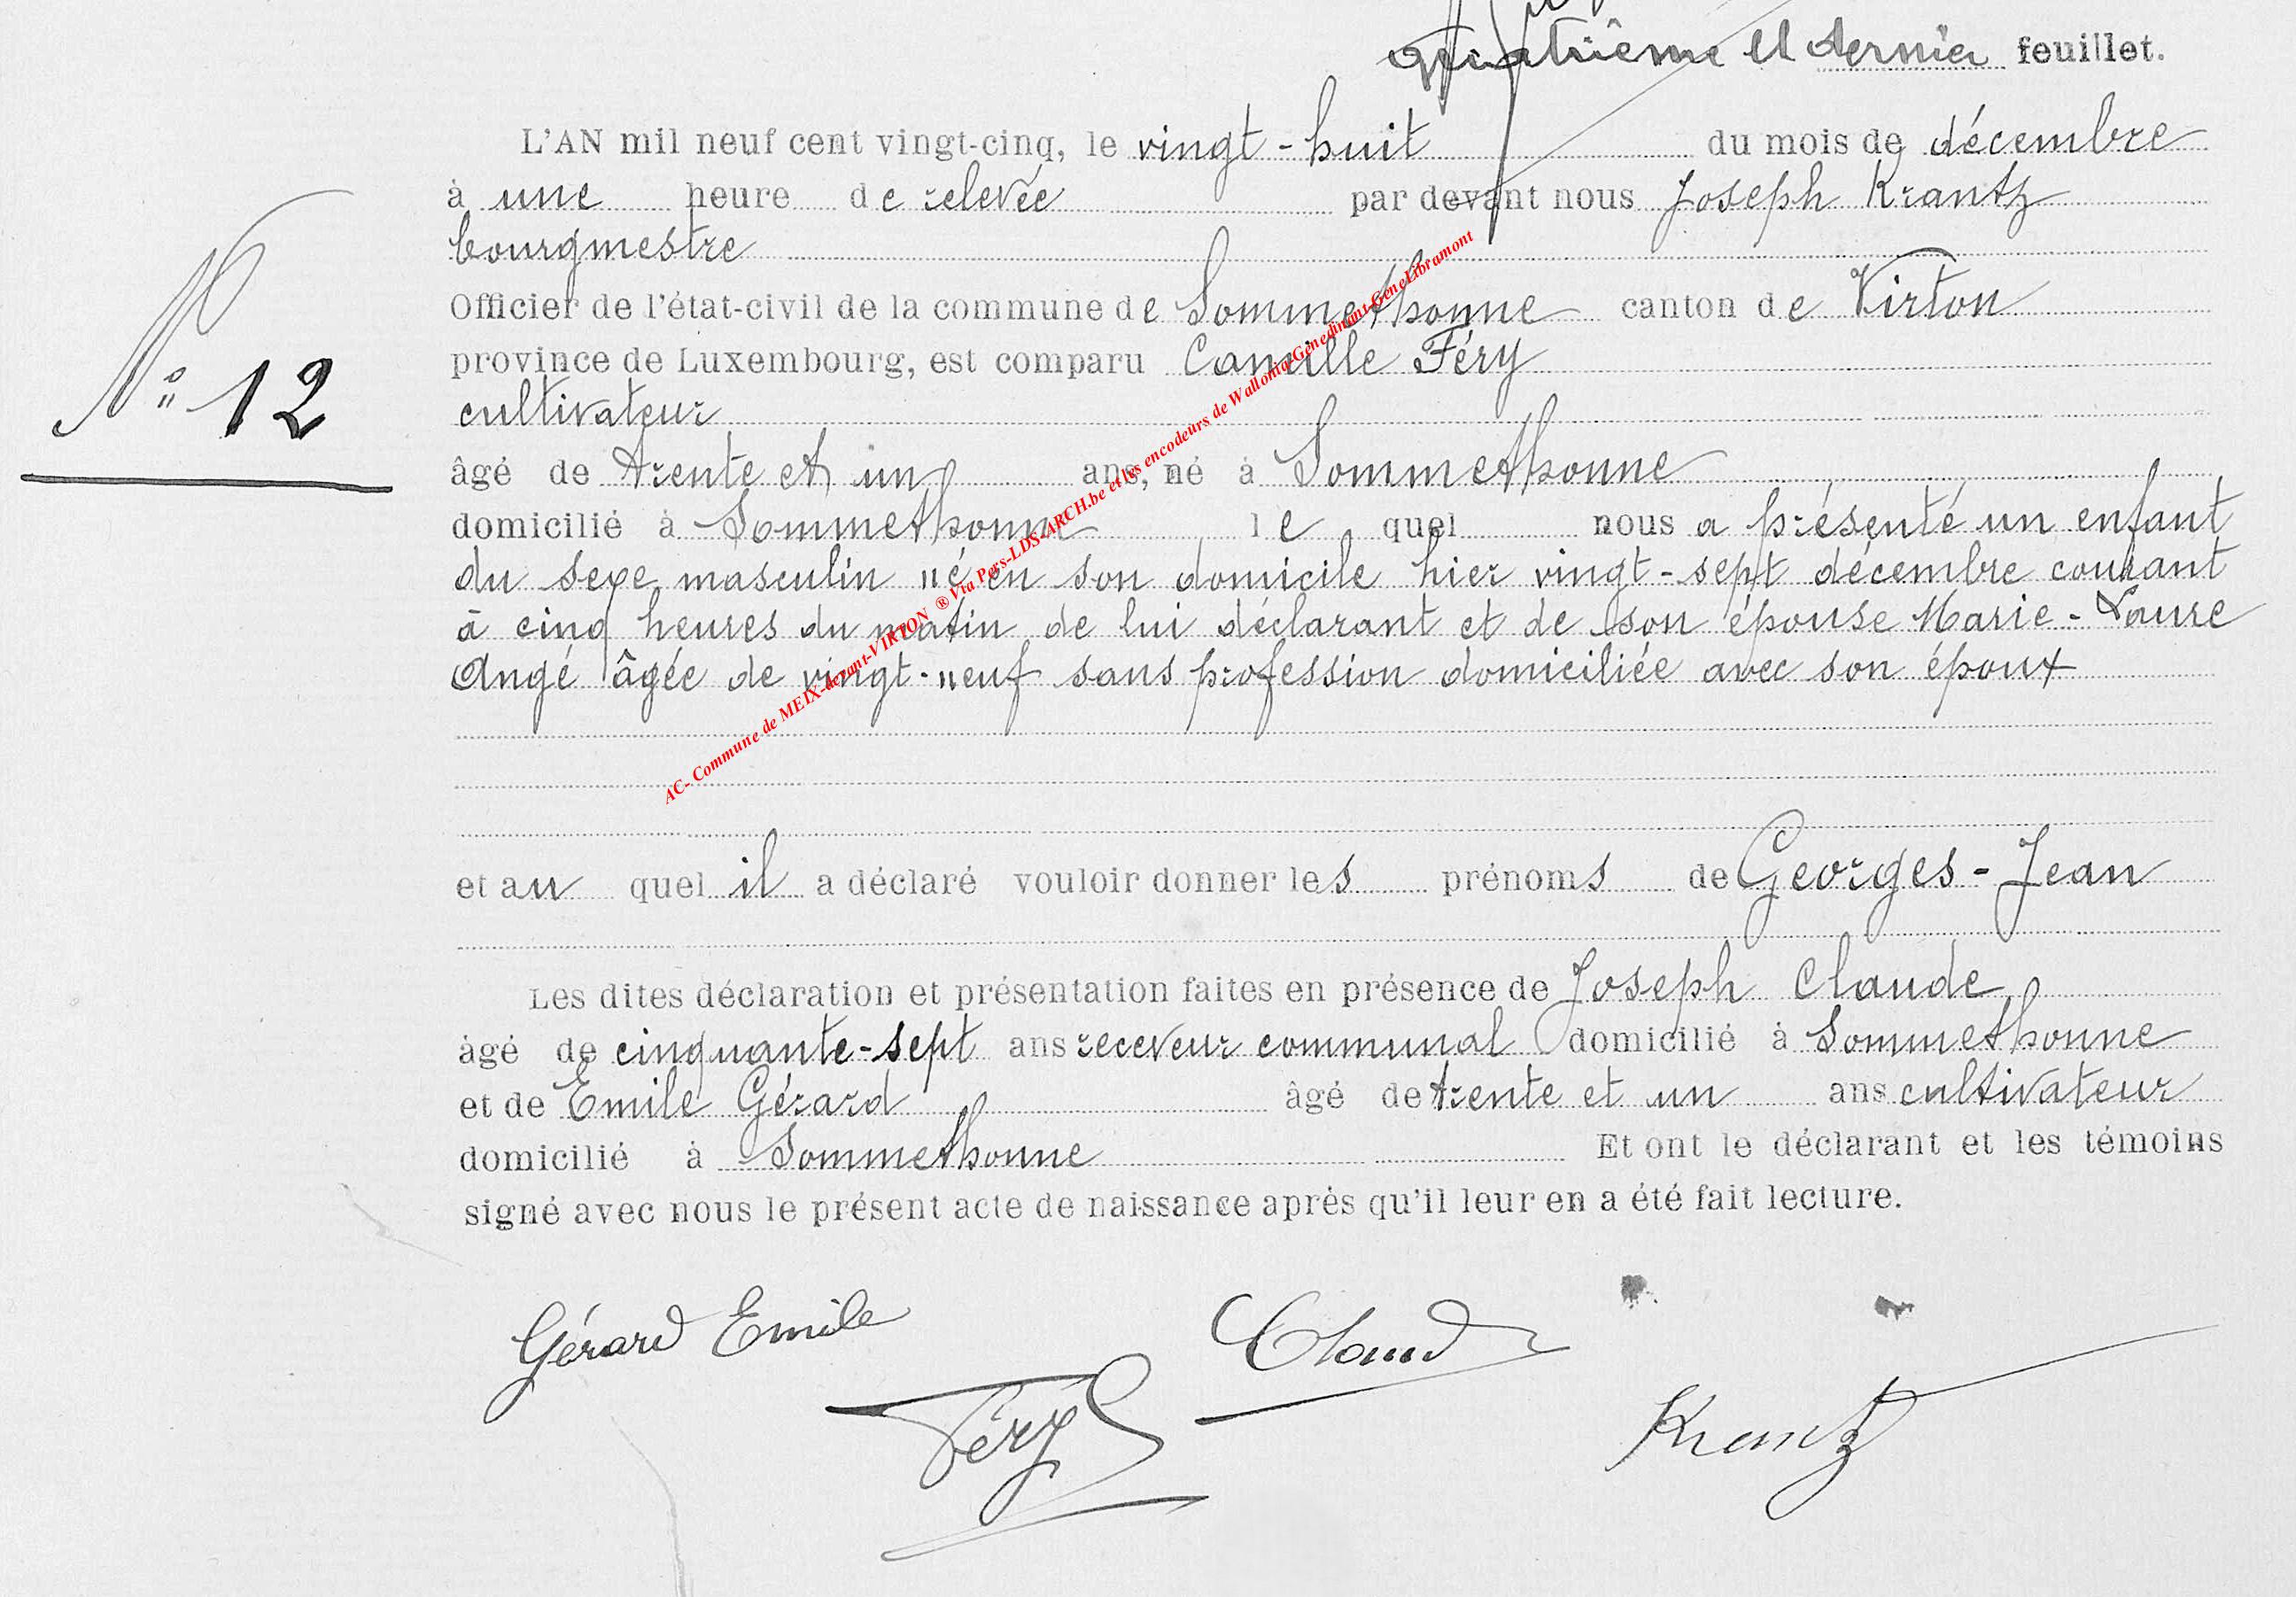 Quatrième et dernier feuillet.
L'AN mil neuf cent vingt-cinq, le vingt-huit du mois de décembre
à une heure de relevée par devant nous Joseph Krantz
bourgmestre
Officier de l'état-civil de la commune de Sommethonne canton de Virton
N° 12
province de Luxembourg, est comparu Camille Féry
cultivateur
âgé de trente et un ans, né à Sommethonne
domicilié à Sommethonne le quel nous a présenté un enfant
du sexe masculin né en son domicile hier vingt-sept décembre courant
à cinq heures du matin de lui déclarant et de son épouse Marie-Laure
Angé âgée de vingt-neuf sans profession domiciliée avec son époux
et au quel il a déclaré vouloir donner les prénoms de Georges-Jean
Les dites déclaration et présentation faites en présence de Joseph Claude
âgé de cinquante-sept ans receveur communal domicilié à Sommethonne
et de Emile Gérard âgé de trente et un ans cultivateur
domicilié à Sommethonne Et ont le déclarant et les témoins
signé avec nous le présent acte de naissance après qu'il leur en a été fait lecture.
Gérard Emile
Claude
Féry
Krantz
AC- Commune de MEIX-devant-VIRTON ® Via Pers-LDS-ARCH.be et les encodeurs de Wallonia-Genedinant-GeneLibramont